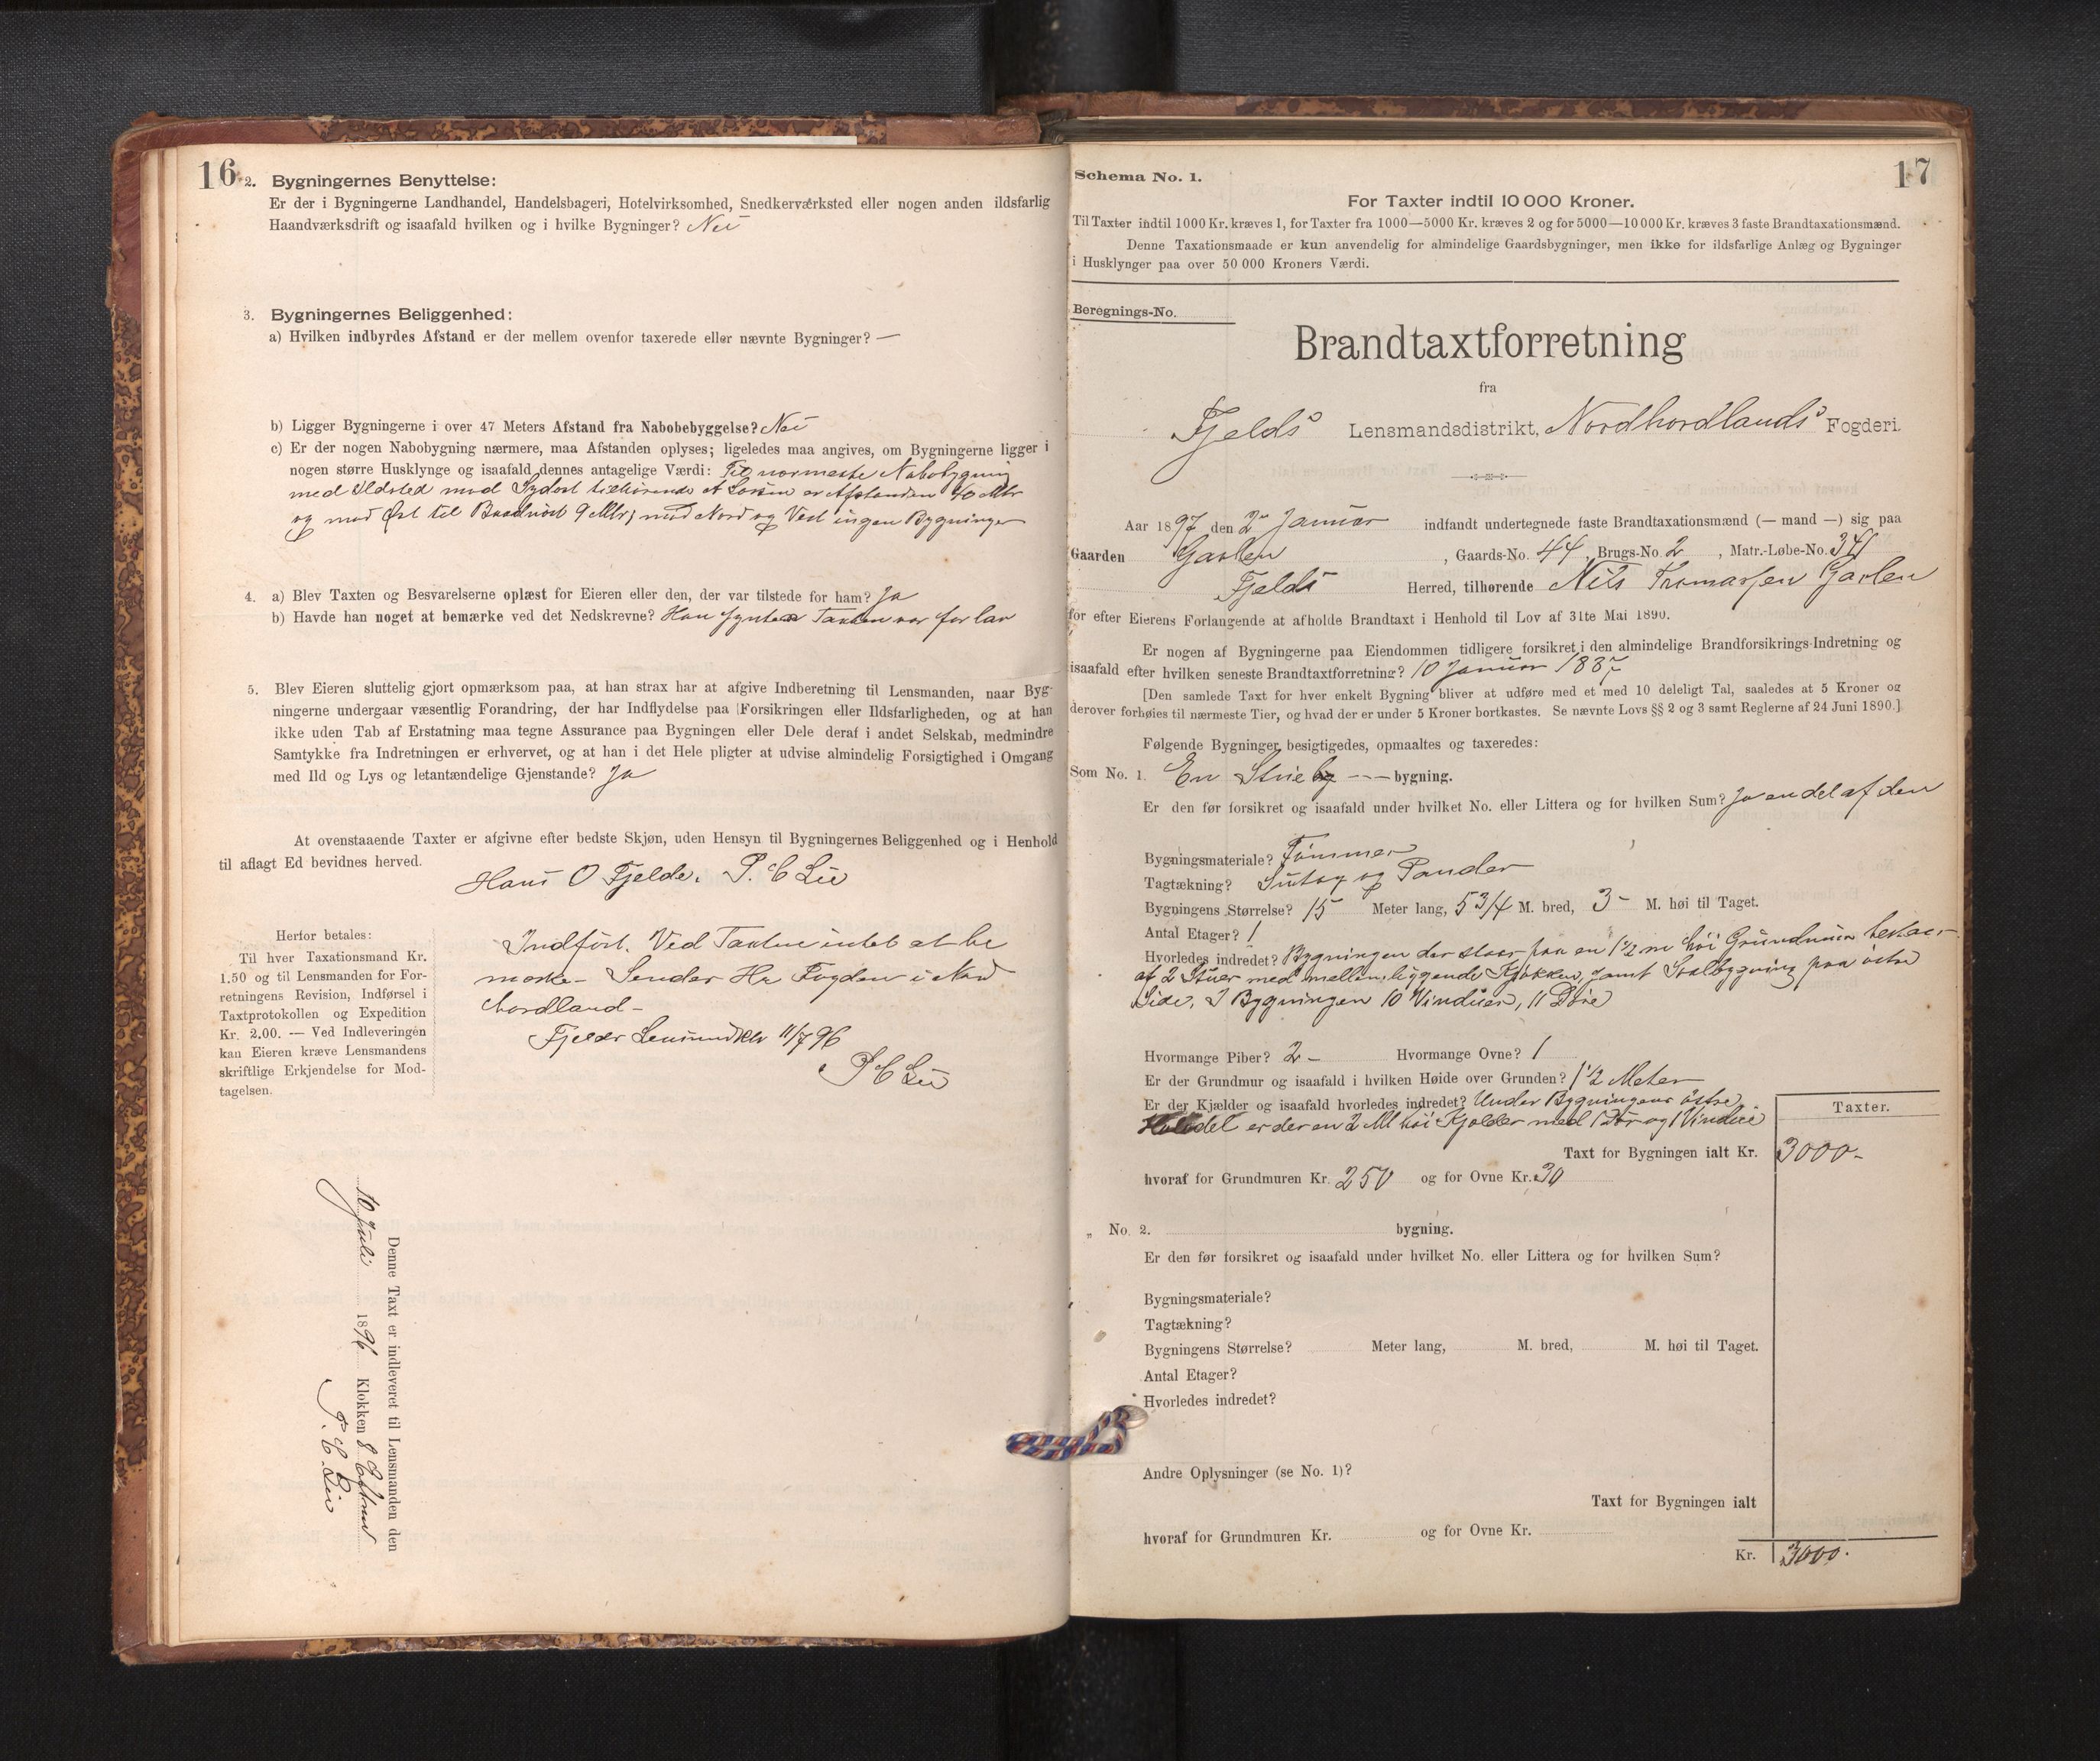 16
2. Bygningernes Benyttelse:
Er der i Bygningerne Landhandel, Handelsbageri, Hotelvirksomhed, Snedkerværksted eller nogen anden ildsfarlig
Haandværksdrift og isaafald hvilken og i hvilke Bygninger? Nei
3. Bygningernes Beliggenhed:
a) Hvilken indbyrdes Afstand er der mellem ovenfor taxerede eller nævnte Bygninger? —
b) Ligger Bygningerne i over 47 Meters Afstand fra Nabobebyggelse? Nei
c) Er der nogen Nabobygning nærmere, maa Afstanden oplyses; ligeledes maa angives, om Bygningerne ligger i
nogen større Husklynge og isaafald dennes antagelige Værdi: Til nærmeste Nabobygning
med Ildsted mod Sydost tilhørende A Larsen er Afstanden 40 Mtr
og mod Øst til Baadnøst 9 Mtr; mod Nord og Vest ingen Bygninger
4. a) Blev Taxten og Besvarelserne oplæst for Eieren eller den, der var tilstede for ham? Ja
b) Havde han noget at bemærke ved det Nedskrevne? Han syntes Taxten var for lav
5. Blev Eieren sluttelig gjort opmærksom paa, at han strax har at afgive Indberetning til Lensmanden, naar Byg-
ningerne undergaar væsentlig Forandring, der har Indflydelse paa Forsikringen eller Ildsfarligheden, og at han
ikke uden Tab af Erstatning maa tegne Assurance paa Bygningen eller Dele deraf i andet Selskab, medmindre
Samtykke fra Indretningen er erhvervet, og at han i det Hele pligter at udvise almindelig Forsigtighed i Omgang
med Ild og Lys og letantændelige Gjenstande? Ja
At ovenstaaende Taxter er afgivne efter bedste Skjøn, uden Hensyn til Bygningernes Beliggenhed og i Henhold
til aflagt Ed bevidnes herved.
Hans O Fjelde. P. C Lie
Herfor betales:
Til hver Taxationsmand Kr.
1.50 og til Lensmanden for For-
retningens Revision, Indførsel i
Taxtprotokollen og Expedition
Kr. 2.00. — Ved Indleveringen
kan Eieren kræve Lensmandens
skriftlige Erkjendelse for Mod-
tagelsen.
Indført. Ved Taxten intet at be
mærke – Sendes Hr Fogden i Nord
hordland –
Fjelds 11/7 96
P C Lie
Denne Taxt er indleveret til Lensmanden den
10 Juli 1896 Klokken 8 Efterm
P. C. Lie
17
Schema No. 1.
For Taxter indtil 10 000 Kroner.
Til Taxter indtil 1000 Kr. kræves 1, for Taxter fra 1000—5000 Kr. kræves 2 og for 5000—10 000 Kr. kræves 3 faste Brandtaxationsmænd.
Denne Taxationsmaade er kun anvendelig for almindelige Gaardsbygninger, men ikke for ildsfarlige Anlæg og Bygninger
i Husklynger paa over 50 000 Kroners Værdi.
Beregnings-No.
Brandtaxtforretning
fra
Fjelds Lensmandsdistrikt, Nordhordlands Fogderi.
Aar 1897 den 2en Januar indfandt undertegnede faste Brandtaxationsmænd (— mand —) sig paa
Gaarden Garlen, Gaards-No. 44, Brugs-No. 2, Matr.-Løbe-No. 341
Fjelds Herred, tilhørende Nils Thomassen Garlen
for efter Eierens Forlangende at afholde Brandtaxt i Henhold til Lov af 31te Mai 1890.
Er nogen af Bygningerne paa Eiendommen tidligere forsikret i den almindelige Brandforsikrings-Indretning og
isaafald efter hvilken seneste Brandtaxtforretning? 10 Januar 1887
[Den samlede Taxt for hver enkelt Bygning bliver at udføre med et med 10 deleligt Tal, saaledes at 5 Kroner og
derover forhøies til nærmeste Tier, og hvad der er under 5 Kroner bortkastes. Se nævnte Lovs §§ 2 og 3 samt Reglerne af 24 Juni 1890.]
Følgende Bygninger besigtigedes, opmaaltes og taxeredes:
Som No. 1. En Stueby --- bygning.
Er den før forsikret og isaafald under hvilket No. eller Littera og for hvilken Sum? Ja en del af den
Bygningsmateriale? Tømmer
Tagtækning? Sutag og Pander
Bygningens Størrelse? 15 Meter lang, 5 3/4 M. bred, 3 – M. høi til Taget.
Antal Etager? 1
Hvorledes indredet? Bygningen der staar paa en 1½ m høi Grundmur bestaar
af 2 Stuer med mellemliggende Kjøkken, samt Svalbygning paa østre
Side, I Bygningen 10 Vinduer, 11 Døre
Hvormange Piber? 2 – Hvormange Ovne? 1
Er der Grundmur og isaafald i hvilken Høide over Grunden? 1½ Meter
Er der Kjælder og isaafald hvorledes indredet? Under Bygningens østre
Halvdel er der en 2 M høi Kjelder med 1 Dør og 1 Vindue
Taxter.
Taxt for Bygningen ialt Kr. 3000–
hvoraf for Grundmuren Kr. 250 og for Ovne Kr. 30
„ No. 2. bygning.
Er den før forsikret og isaafald under hvilket No. eller Littera og for hvilken Sum?
Bygningsmateriale?
Tagtækning?
Bygningens Størrelse? Meter lang, M. bred, M. høi til Taget.
Antal Etager?
Hvorledes indredet?
Andre Oplysninger (se No. 1)?
Taxt for Bygningen ialt
hvoraf for Grundmuren Kr. og for Ovne Kr.
Kr. 3000.